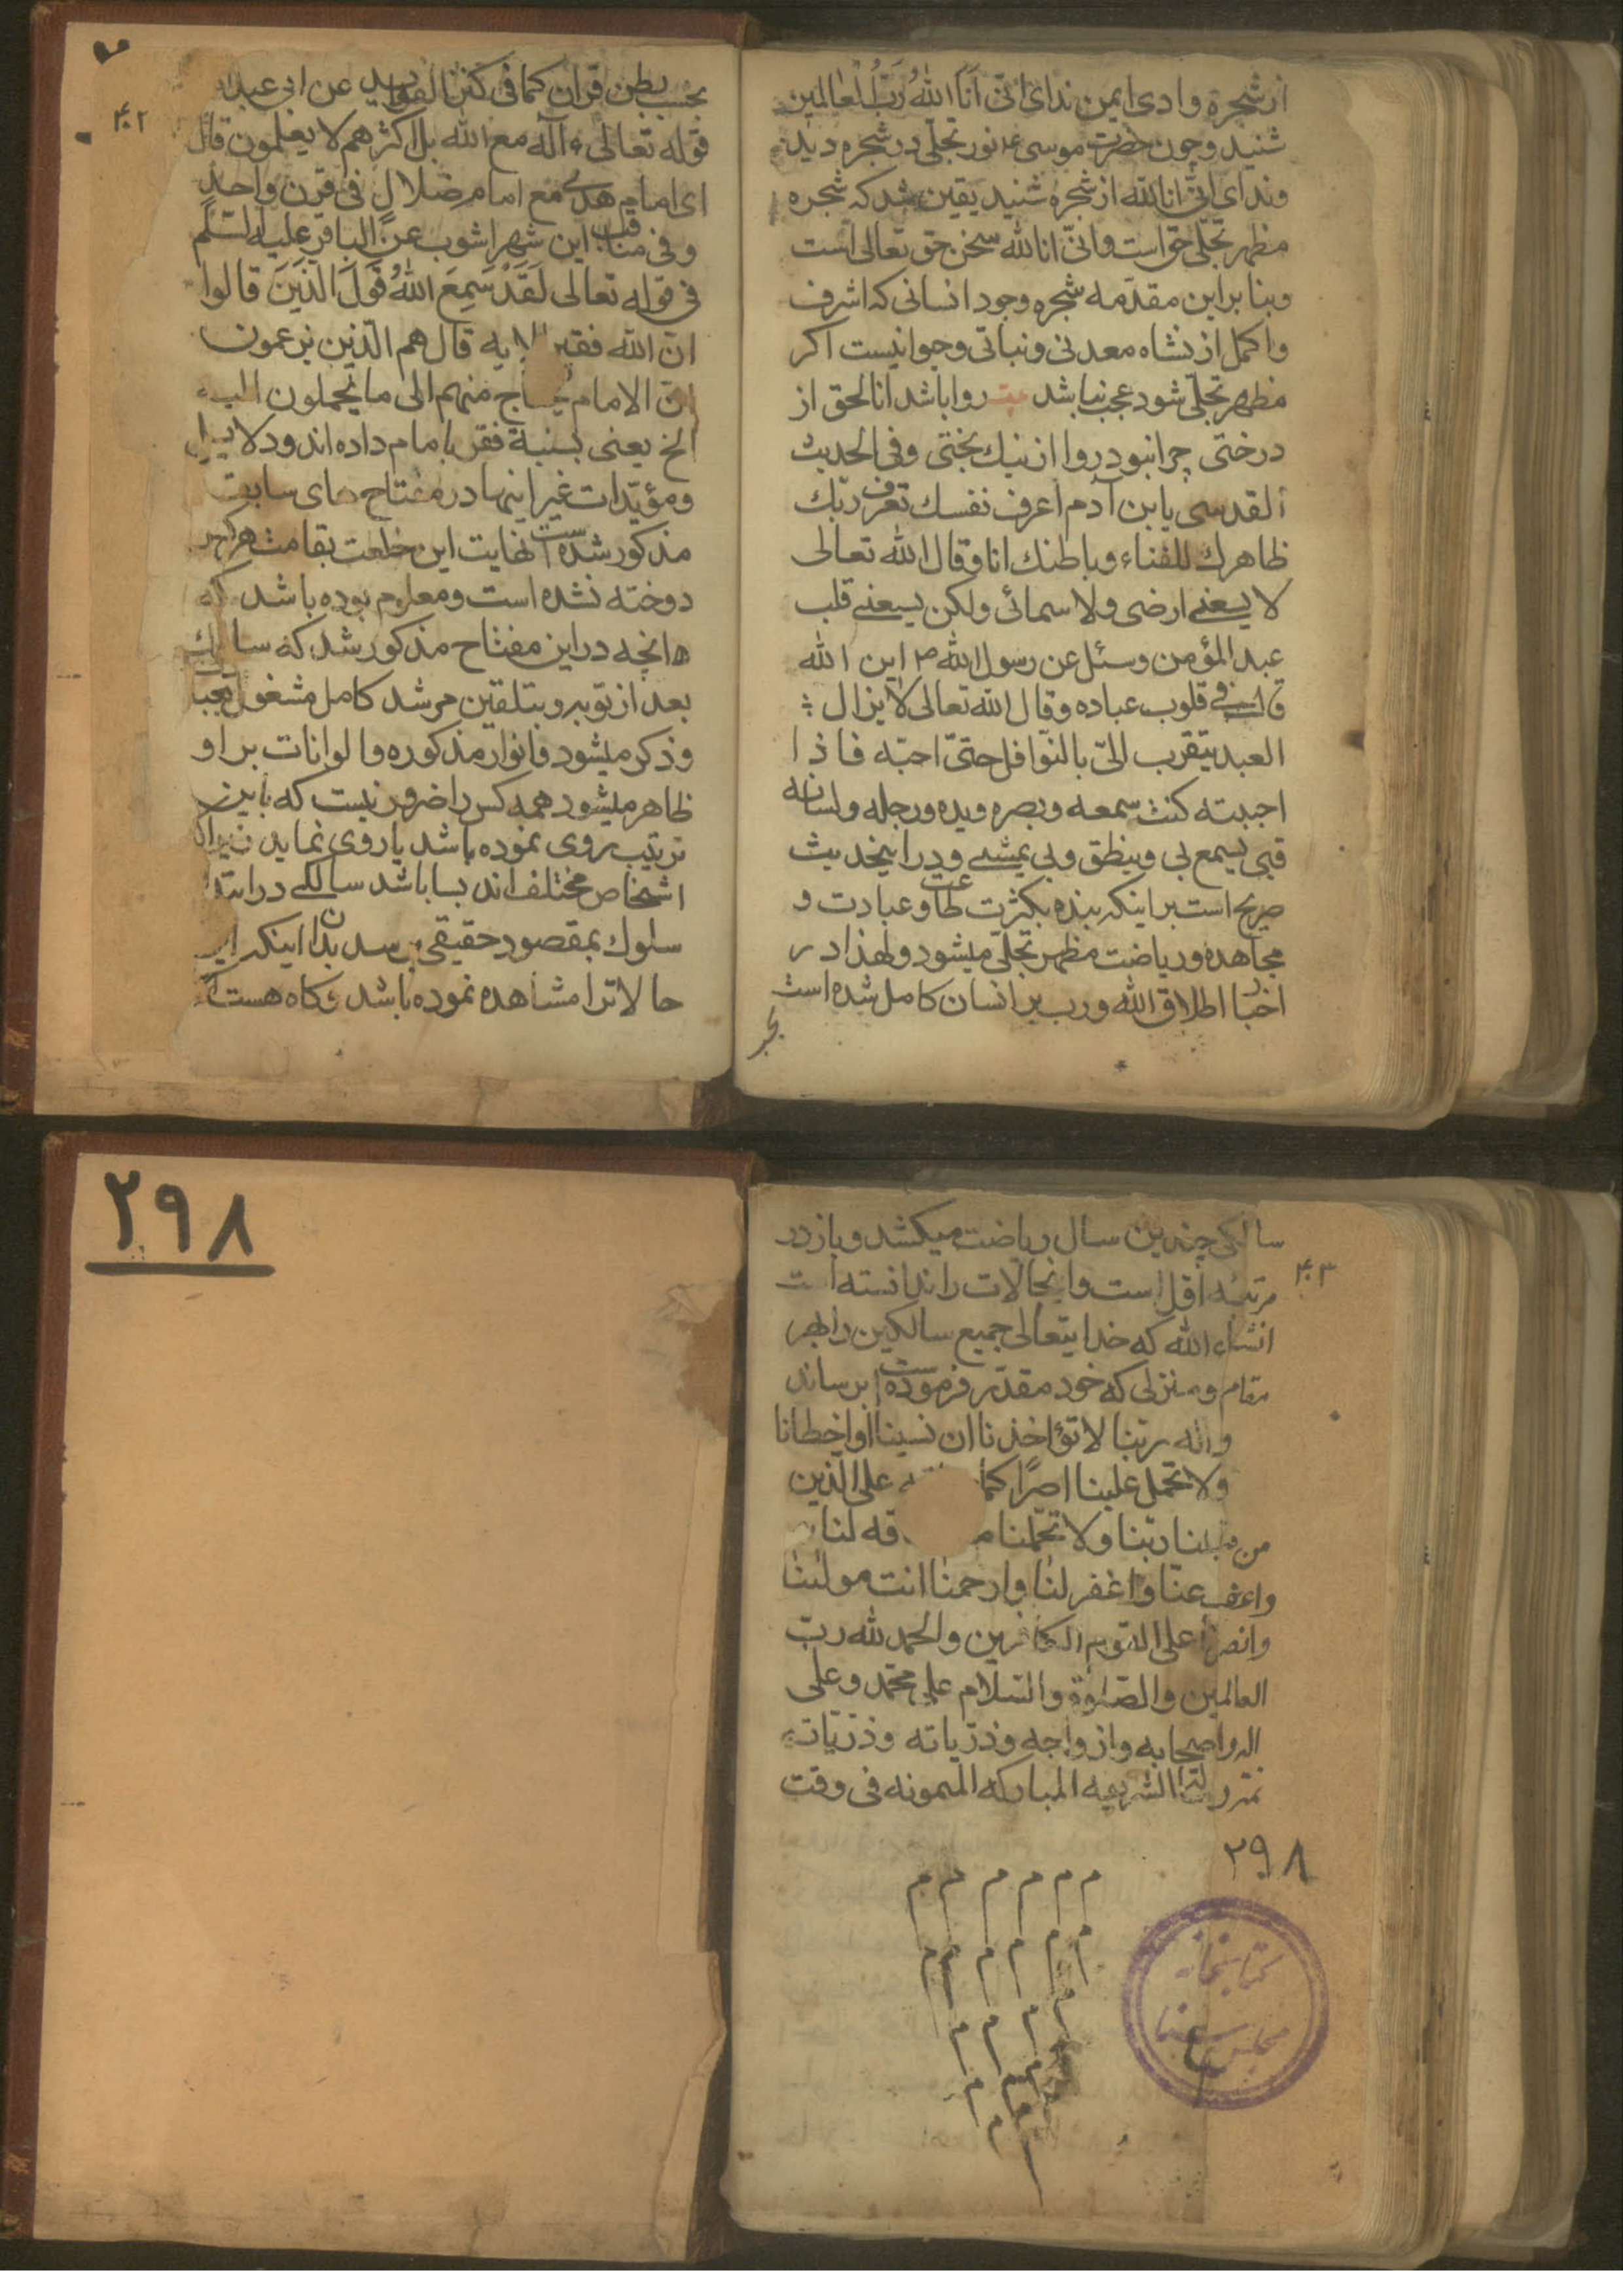 از شجرهٔ وادی ایمن ندای انّی اَنَا اللهُ رَبُّ الْعالمین
شنید و چون حضرت موسی ع نور تجلّی در شجره دید
و ندای انّی انا الله از شجره شنید یقین شد که شجره
مظهر تجلّی حق است و انّی انا الله سخن حق تعالی است
و بنا بر این مقدّمه شجره وجود انسانی که اشرف
و اکمل از نشاه معدنی و نباتی و حیوانیست اکر
مظهر تجلّی شود عجب نباشد روا باشد انا الحق از
درختی چرا نبود روا از نیک بختی وفی الحدیث
القدسی یابن آدم اعرف نفسك تعرف ربّك
ظاهرك للفناء وباطنك انا وقال الله تعالی
لا یسعنی ارضی ولا سمائی ولکن یسعنی قلب
عبد المؤمن وسئل عن رسول الله ص این الله
قال فی قلوب عباده وقال الله تعالی لا یزال
العبد یتقرب الیّ بالنوافل حتیّ احبّه فاذا
احببته کنت سمعه وبصره ویده ورجله ولسانه
فبی یسمع بی وینطق وبی یمشی ودر اینحدیث
صریح است بر اینکه بنده بکثرت طاعت و عبادت و
مجاهده وریاضت مظهر تجلّی میشود ولهذا در
اخبار اطلاق الله ورب بر انسان کامل شده است
بحسب بطن قرآن کما فی کنز الفواید عن ابی عبد الله
۴۰۲
قوله تعالی ءآله مع الله بل اکثرهم لا یعلمون قال
ای امام هدی مع امام ضلال فی قرن واحد
وفی مناقب ابن شهر اشوب عن الباقر علیه السّلم
فی قوله تعالی لَقَدْ سَمِعَ اللهُ قَوْلَ الَّذینَ قالوا
انّ الله فقیر الایه قال هم الّذین یزعمون
انّ الامام یحتاج منهم الی ما یحملون الیه
الخ یعنی نسبة فقر بامام داده اند ودلایل
ومؤیّدات غیر اینها در مفتاح های سابق
مذکور شده است نهایت این خلعت بقامت هر کس
دوخته نشده است ومعلوم بوده باشد که
انچه در این مفتاح مذکور شد که سالك
بعد از توبه وبتلقین مرشد کامل مشغول
وذکر میشود وانوار مذکوره والوانات بر او
ظاهر میشود همه کس را ضرور نیست که باین
ترتیب روی نموده باشد یا روی نماید زیرا که
اشخاص مختلف اند بسا باشد سالکی در ابتدا
سلوك بمقصود حقیقی برسد بدون اینکه این
حالاترا مشاهده نموده باشد وکاه هست
۴۰۳
سالکی چندین سال ریاضت میکشد وباز در
مرتبه اوّل است واینحالات را ندانسته است
انشاء الله که خدایتعالی جمیع سالکین را بهر
مقام ومنزلی که خود مقدّر فرموده است برساند
والله ربّنا لا تؤاخذنا ان نسینا او اخطانا
ولا تحمل علینا اصرًا کما علی الّذین
من قبلنا ربّنا ولا تحمّلنا قه لنا
واعف عنّا واغفر لنا وارحمنا انت مولینا
وانصرنا علی القوم الکافرین والحمد لله ربّ
العالمین والصّلوة والسّلام علی محمّد وعلی
اله واصحابه وازواجه وذرّیاته وذرّیاته
الشریفه المبارکه المیمونه فی وقت
۲۹۸
م م م م م م
م م م م م
م م م م
م م م
م م
کتابخانه
مجلس سنا
۲۹۸